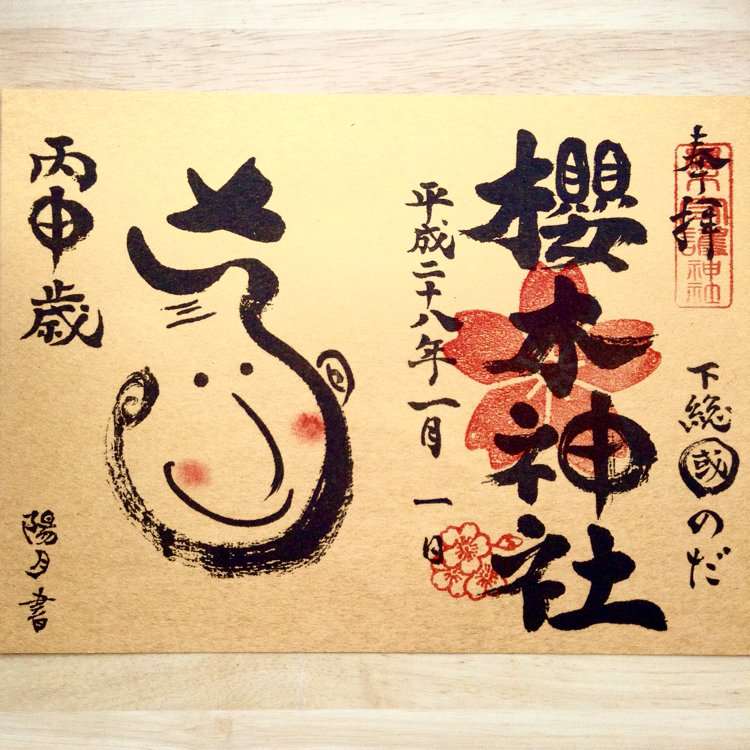 奉拝
下総國のだ
櫻木神社
平成二十八年一月一日
丙申歳
陽月書